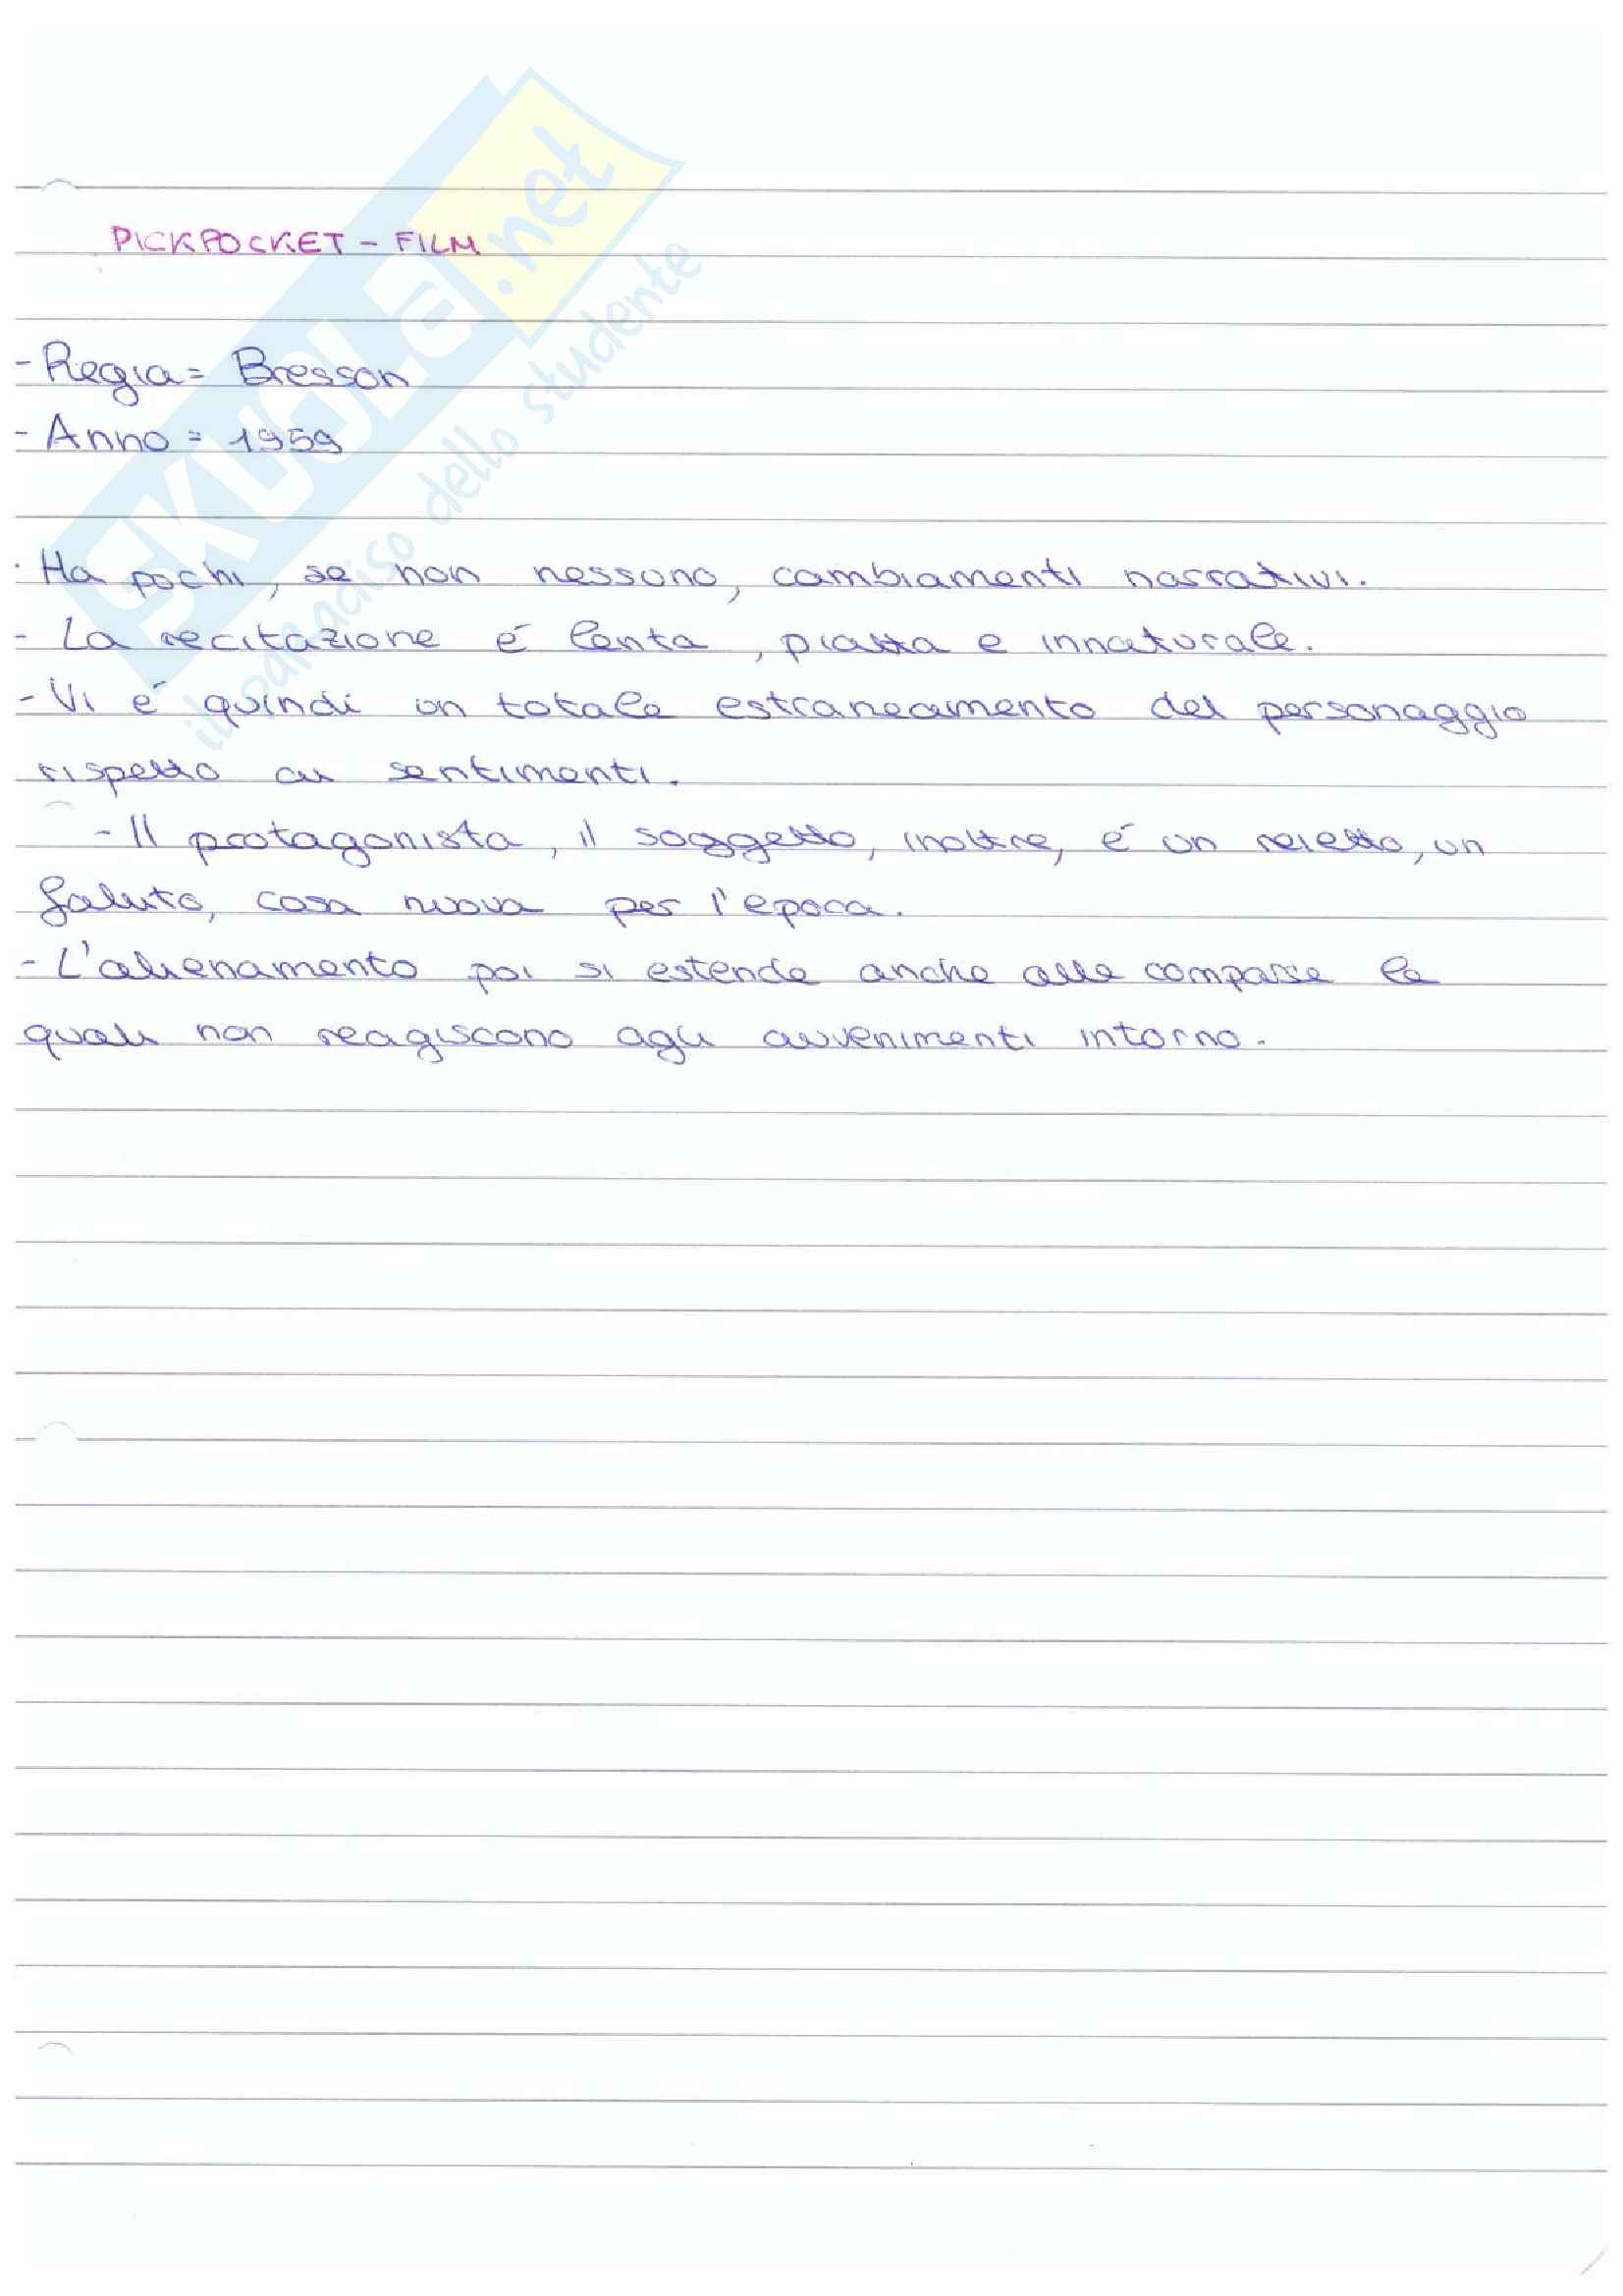 PICKPOCKET - FILM
- Regia = Bresson
- Anno = 1959
· Ha pochi, se non nessuno, cambiamenti narrativi.
- La recitazione é lenta, piatta e innaturale.
- Vi é quindi un totale estraneamento del personaggio
rispetto ai sentimenti.
- Il protagonista, il soggetto, inoltre, é un reietto, un
fallito, cosa nuova per l'epoca.
- L'alienamento poi si estende anche alle comparse le
quali non reagiscono agli avvenimenti intorno.
SKUOLA.net
il paradiso dello studente